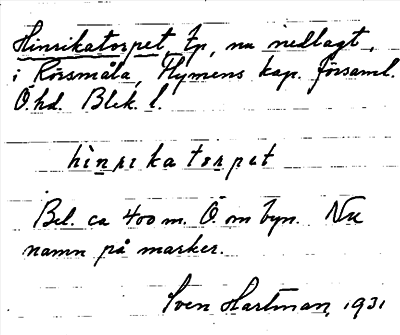 Hinrikatorpet, tp, nu nedlagt,
i Rörsmåla, Flymens kap. församl.
Ö. hd. Blek. l.
hinrikatorpet
Bel. ca 400 m. Ö. om byn. Nu
namn på marker.
Sven Hartman, 1931